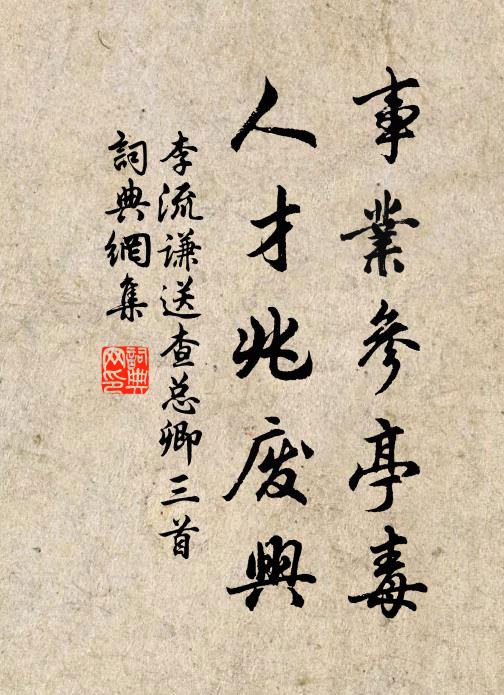 事業參亭毒
人才兆廢興
李流謙送查总卿三首
詞典網集
詞典网印